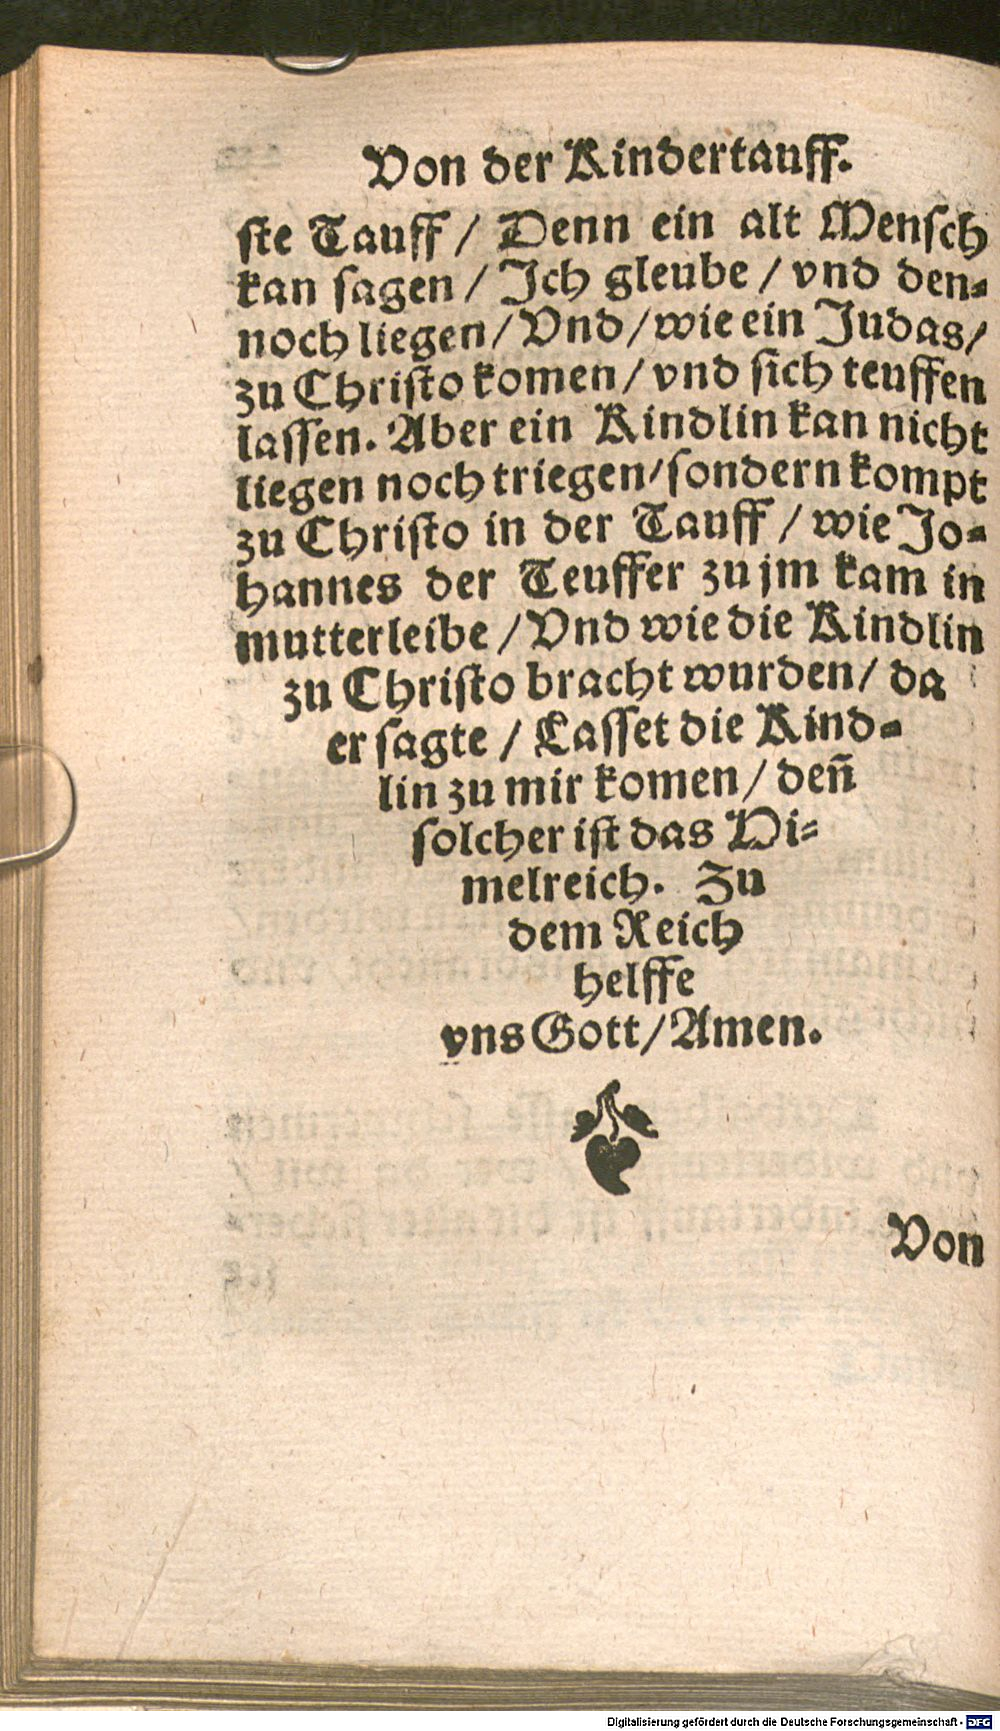 Von der Kindertauff.
ste Tauff / Denn ein alt Mensch
kan sagen / Ich gleube / vnd den⸗
noch liegen / Vnd / wie ein Judas /
zu Christo komen / vnd sich teuffen
lassen. Aber ein Kindlin kan nicht
liegen noch triegen / sondern kompt
zu Christo in der Tauff / wie Jo⸗
hannes der Teuffer zu jm kam in
mutterleibe / Vnd wie die Kindlin
zu Christo bracht wurden / da
er sagte / Lasset die Kind⸗
lin zu mir komen / deñ
solcher ist das Hi⸗
melreich. Zu
dem Reich
helffe
vns Gott / Amen.
Von
Digitalisierung gefördert durch die Deutsche Forschungsgemeinschaft - DFG